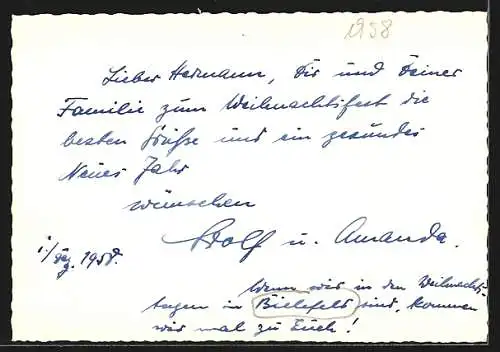 1958
Lieber Hermann, Dir und Deiner
Familie zum Weihnachtsfest die
besten Grüße und ein gesundes
Neues Jahr
wünschen
Adolf u. Amanda.
i./Dez. 1958.
Wenn wir in den Weihnachts-
tagen in Bielefeld sind, kommen
wir mal zu Euch!